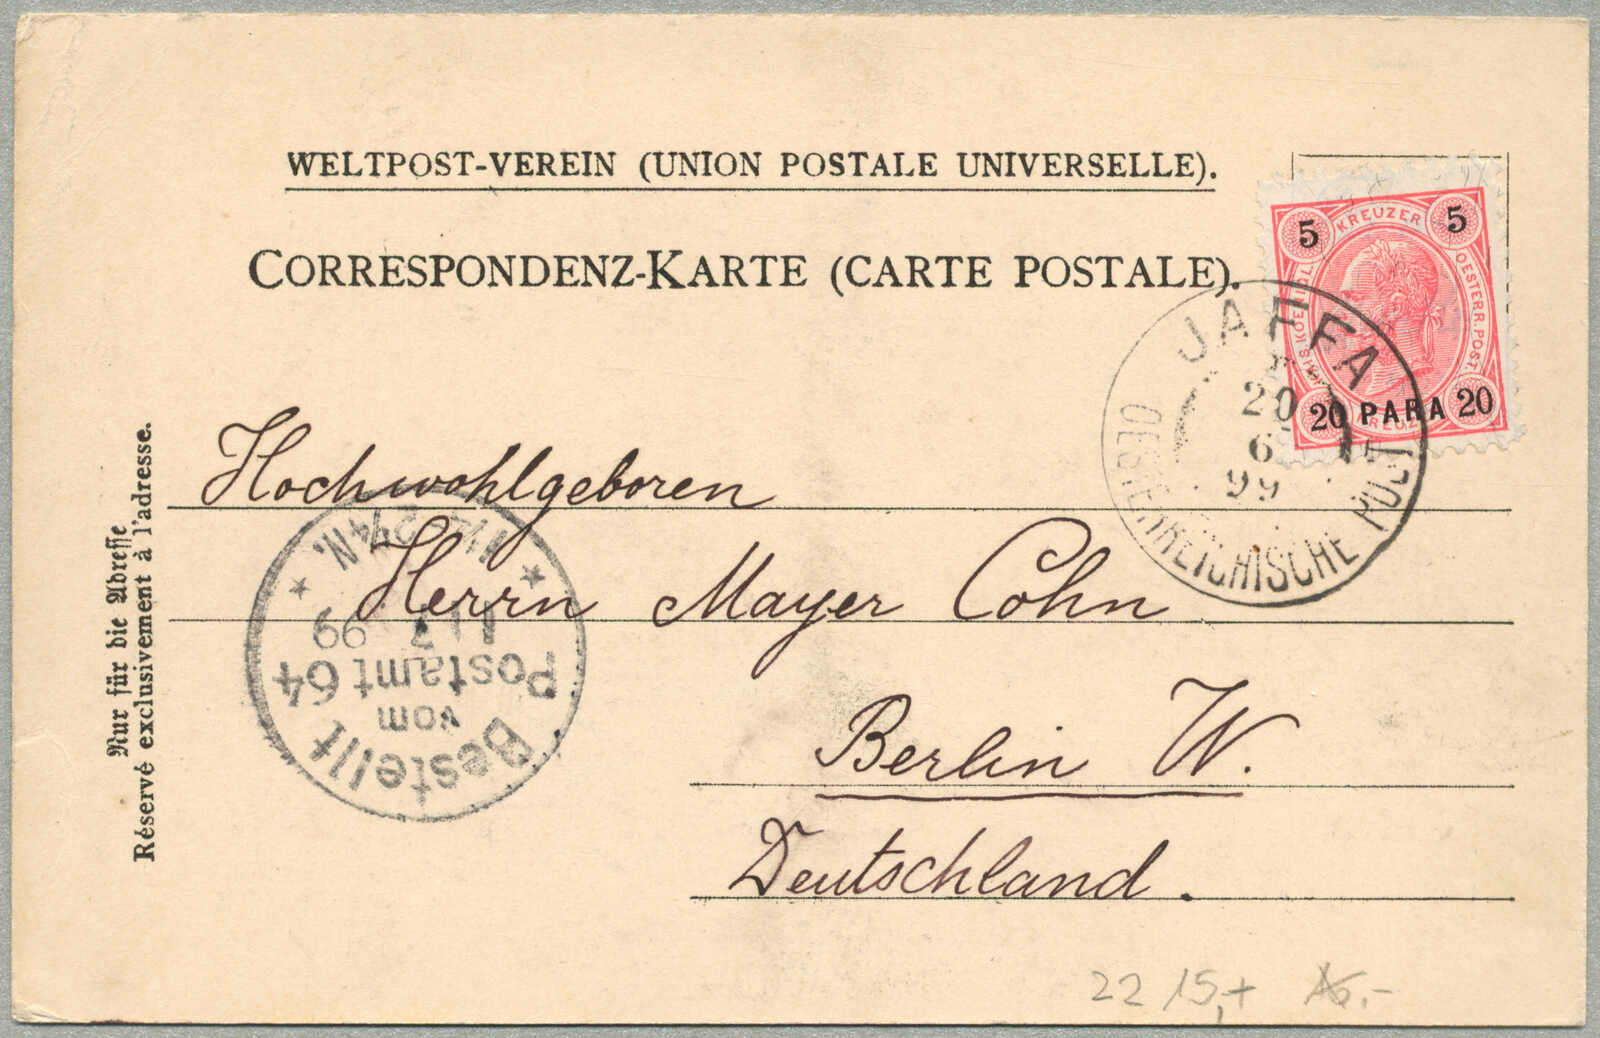 WELTPOST-VEREIN (UNION POSTALE UNIVERSELLE).
CORRESPONDENZ-KARTE (CARTE POSTALE).
5 KREUZER 5
OESTERR. POST.
20 PARA 20
JAFFA
20
6
99
OESTERREICHISCHE POST
Nur für die Adresse
Réservé exclusivement à l'adresse.
Hochwohlgeboren
Herrn Mayer Cohn
Berlin W.
Deutschland.
Bestellt
vom
Postamt 64
7 99
2¼N.
22 15,+